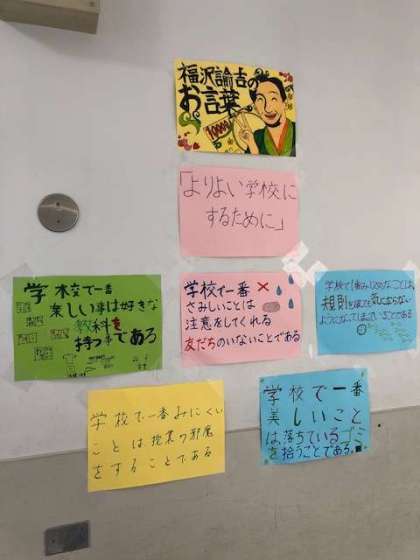 福沢諭吉の
お言葉
10000
「よりよい学校に
するために」
学校で一番
楽しい事は好きな
教科を
持つ事である
学校で一番
さみしいことは
注意をしてくれる
友だちのいないことである
学校で一番みじめなことは、
規則を破っても気にならない
ようになってしまっていることである
学校で一番みにくい
ことは授業の邪魔
をすることである
学校で一番
美しいこと
は、落ちているゴミ
を拾うことである。